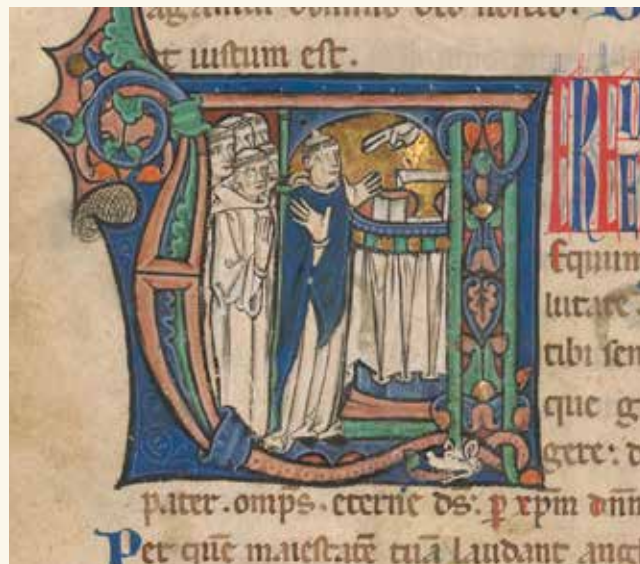 agamus domino deo nostro.
et iustum est.
ERE
Equum
lutare
tibi sem
que g
gere: d
pater. omps. eterne ds: p xpm dnm
Per quē maiestatē tuā laudant angl